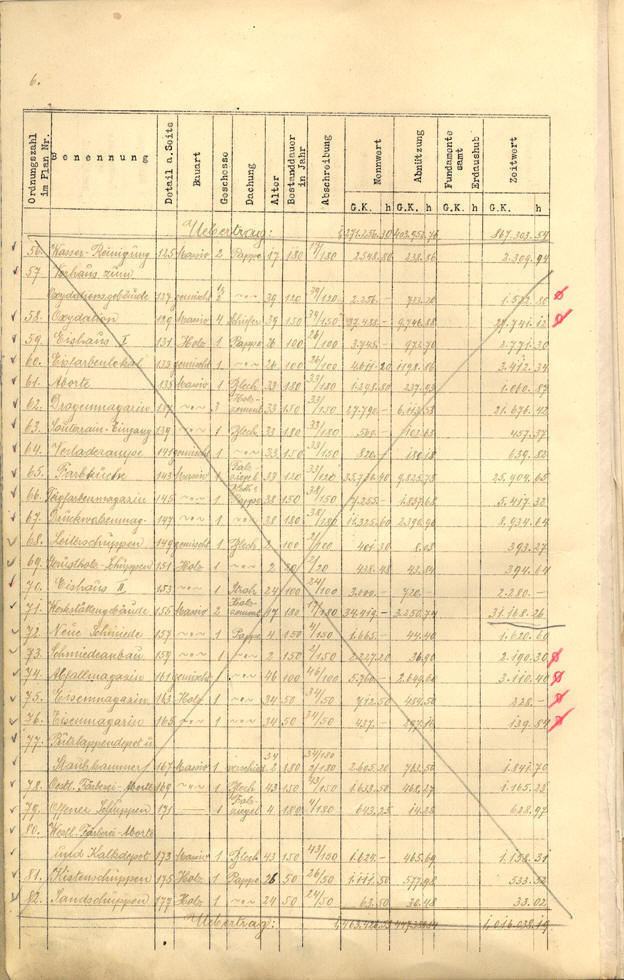 6.
Ordnungszahl im Plan Nr. Benennung Detail a. Seite Bauart Geschosse Dachung Alter Bestanddauer in Jahr Abschreibung Nennwert Abnützung Fundamente samt Erdaushub Zeitwert
G.K. h G.K. h G.K. h G.K. h
Uebertrag: 867.303.54
56. Wasser-Reinigung 125 Massiv 2 Pappe 17 180 17/180 2548.80 238.86 2.309.94
57. Vorhaus zum
Oxydationsgebäude 127 gemischt 39 120 39/120
58. Oxydation 129 Massiv 4 Schiefer 39 150 39/150 9.746.88
59. Eishaus I 131 Holz 1 Pappe 26 100 26/100 3.745.- 973.70 2.771.30
60. Erdfarbenlokal 133 gemischt 1 26 100 26/100 4.611.20 1198.86 3.412.34
61. Aborte 135 Massiv 1 Blech 33 180 33/180 1.298.80 237.93 1.060.87
62. Drogenmagazin 137 3 Holz-zement 33 150 33/150 27.790.- 21.676.42
63. Souterrain-Eingang 139 1 Blech 33 180 33/180 560.- 102.63 457.37
64. Verladerampe 141 gemischt 1 33 150 33/150 820.- 639.82
65. Farbküche 143 Massiv 1 Falzziegel 33 120 33/120 9.825.75 25.904.65
66. magazin 145 1 Pappe 38 150 38/150 7.255.- 1.837.68 5.417.32
67. Druckwalzenmag. 147 1 38 180 38/180 11.325.60 2390.96 8.934.64
68. Leiterschuppen 149 gemischt 1 Blech 2 100 2/100 401.30 8.03 393.27
69. Gerüstholz-Schuppen 151 Holz 1 2 20 2/20 438.48 43.84 394.64
70. Eishaus II 153 1 Stroh 24 100 24/100 3.000.- 720.- 2.280.-
71. Werkstättengebäude 155 Massiv 2 Holzzement 17 180 17/180 34.419.- 3.250.74 31.168.26
72. Neue Schmiede 157 1 Pappe 4 150 4/150 1.665.- 44.40 1.620.60
73. Schmiedeanbau 159 1 2 150 2/150 2.227.20 36.90 2.190.30
74. Abfallmagazin 161 gemischt 1 46 100 46/100 5.760.- 2.649.60 3.110.40
75. Eisenmagazin 163 Holz 1 34 50 34/50 712.50 484.50 228.-
76. Eisenmagazin 165 1 34 50 34/50 437.- 297.16 139.84
77. Putzlappendepot u.
Staubkammer 167 Massiv 1 verschied. 34 2 180 34/180 2/180 2.605.20 763.50 1.841.70
78. Oestl. Färberei-Aborte 169 1 Blech 43 150 43/150 1633.50 468.27 1.165.23
79. Offener Schuppen 171 1 Falzziegel 4 180 4/180 643.25 14.28 628.97
80. Westl. Färberei-Aborte
und Kalkdepot 173 Massiv 1 Blech 43 150 43/150 1.624.- 465.69 1.158.31
81. Kistenschuppen 175 Holz 1 Pappe 26 50 26/50 1.111.50 577.98 533.52
82. Sandschuppen 177 Holz 1 24 50 24/50 63.50 30.48 33.02
Uebertrag: 1,016.038.19